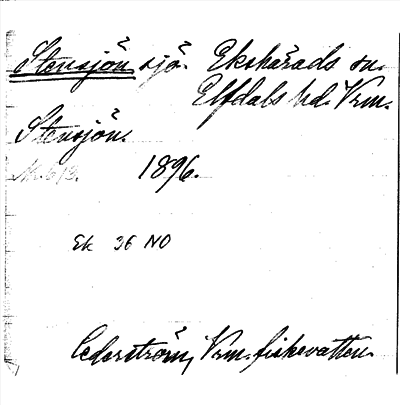 Stensjön sjö. Ekshärads sn.
Elfdals hd. Vrm.
Stensjön.
1896.
Ek 36 NO
Cederström, Vrm. fiskevatten.